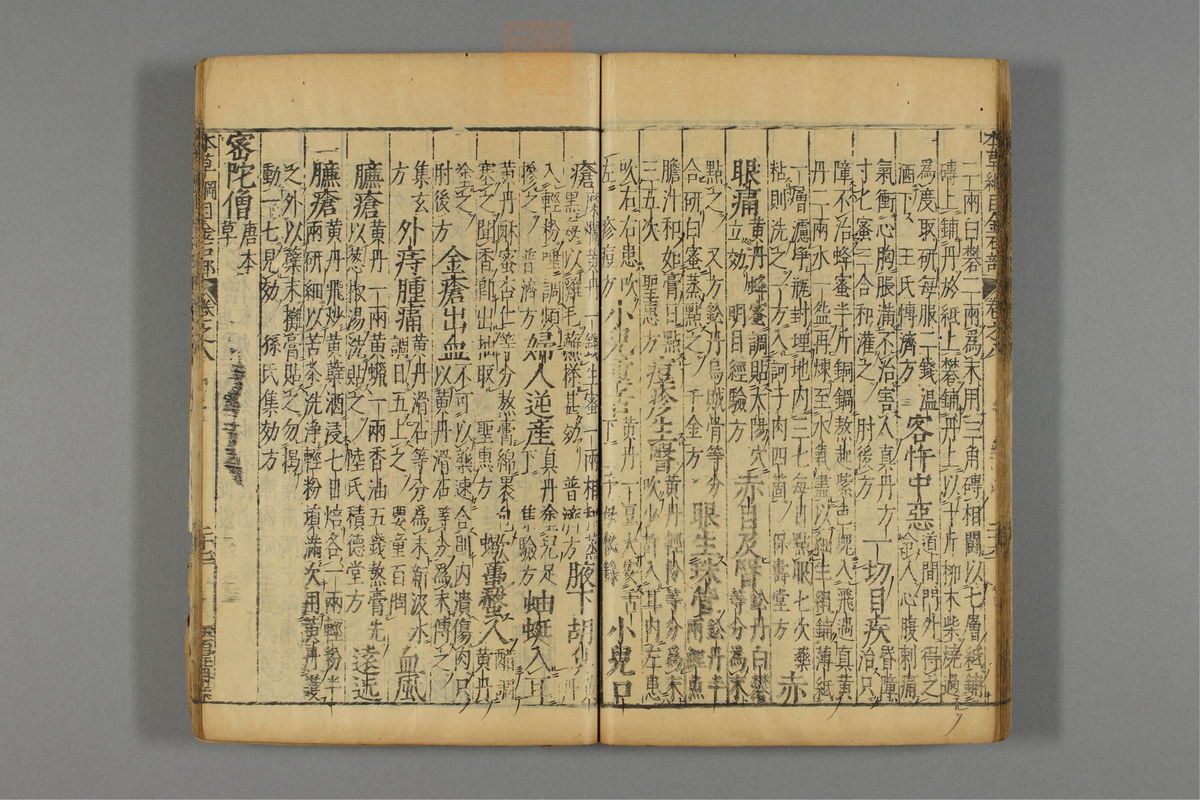 二兩白礬一兩爲末用三角磚相鬬以七層紙鋪
磚上鋪丹於紙上礬鋪丹上以十斤柳木柴燒過
爲度取研每服二錢溫
酒下 王氏博濟方 客忤中惡 道間門外得之
令人心腹刺痛
氣衝心胸脹滿不治害人真丹方
寸匕蜜三合和灌之 肘後方 一切目疾 昏障
治只
障不治蜂蜜半斤銅鍋熬起紫色塊入飛過真黃
丹二兩水一鍾再煉至水氣盡以細生絹鋪薄紙
一層濾淨瓶封埋地內三七每日點眼七次藥
粘則洗之一方入訶子肉四箇 保壽堂方 赤
眼痛 黃丹蜂蜜調貼太陽穴
立効 明目經驗方 赤目及瞖 鉛丹白礬
等分爲末
點之 又方鉛丹烏賊骨等分
合研白蜜蒸點之 千金方 眼生珠管 鉛丹半
兩鯉魚
膽汁和如膏日點
三五次 聖惠方 痘疹生瞖 黃丹輕粉等分爲末
吹少許入耳內左患
吹右右患吹
左 疹痘方 小兒重舌 黃丹一豆大安舌
下 子母秘錄 小兒口
瘡 糜爛黃丹一錢生蜜一兩相和蒸
黑每以雞毛蘸搽甚効 普濟方 腋下胡臭
入輕粉唾調頻
摻之 普濟方 婦人逆産 真丹塗兒足
下 集驗方 蚰蜒入耳
黃丹酥蜜杏仁等分熬膏綿裹包
塞之聞香卽出抽取 聖惠方 蠍蠆螫人 黃丹
醋調
塗之
肘後方 金瘡出血 不可以藥速合則內潰傷肉只
以黃丹滑石等分爲末傅之
集玄
方 外痔腫痛 黃丹滑石等分爲末新汲水
調日五上之 婴童百問 血風
臁瘡 黃丹一兩黃蠟一兩香油五錢熬膏先
以葱椒湯洗貼之 陸氏積德堂方 遠近
臁瘡 黃丹飛炒黃蘗酒浸七日焙各一兩輕粉半
兩研細以苦茶洗淨輕粉填滿次用黃丹護
之外以蘗末攤膏貼之勿揭
動一七見効 孫氏集効方
密陀僧 唐本
草
本草綱目金石部 卷之八